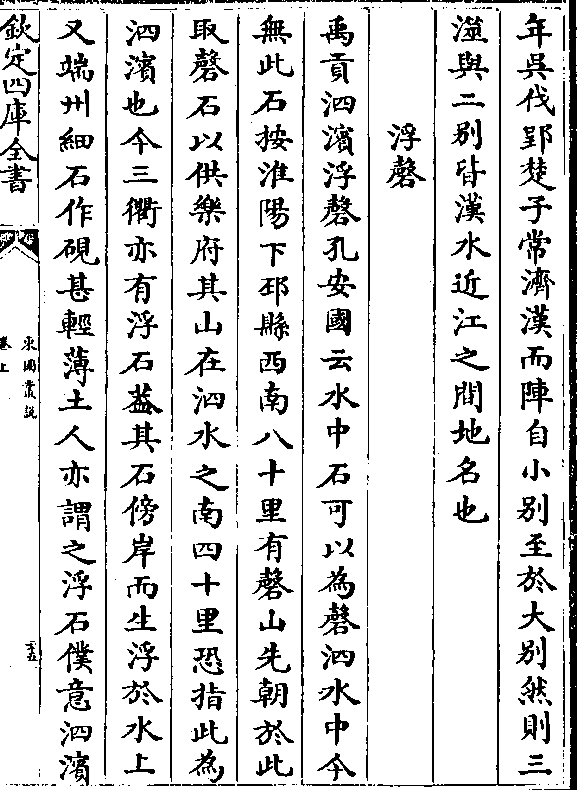 年吳伐郢楚子常濟漢而陣自小别至於大别然則三
澨與二别皆漢水近江之間地名也
浮磬
禹貢泗濱浮磬孔安國云水中石可以為磬泗水中今
無此石按淮陽下邳縣西南八十里有磬山先朝於此
取磬石以供樂府其山在泗水之南四十里恐指此為
泗濱也今三衢亦有浮石葢其石傍岸而生浮於水上
又端州細石作硯甚輕薄土人亦謂之浮石僕意泗濱
欽定四庫全書
東園叢說
卷上